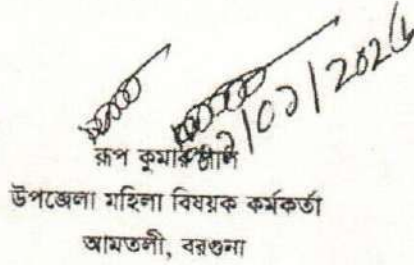 রূপ কুমার পাল
উপজেলা মহিলা বিষয়ক কর্মকর্তা
আমতলী, বরগুনা